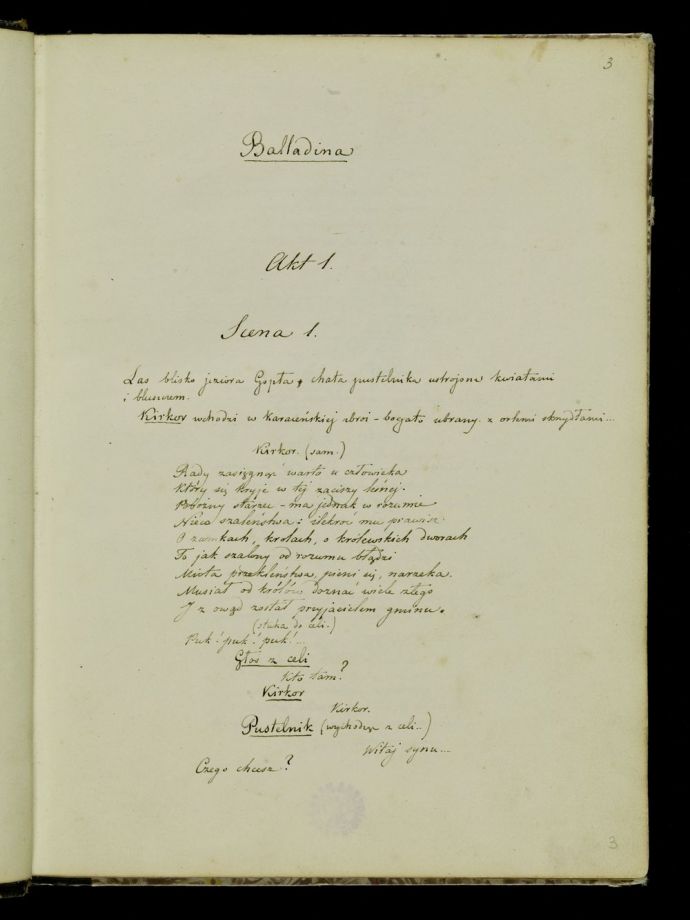 3
Balladina
Akt 1.
Scena 1.
Las blisko jeziora Gopła, chata pustelnika ustrojona kwiatami
i bluszczem.
Kirkor wchodzi w karaceńskiej zbroi - bogato ubrany z orlemi skrzydłami...
Kirkor. (sam.)
Rady zasięgnąć warto u człowieka
Który się kryje w tej zaciszy leśnej.
Pobożny starzec - ma jednak w rozumie
Nieco szaleństwa: ilekroć mu prawisz
O zamkach, krolach, o królewskich dworach
To jak szalony od rozumu błądzi
Miota przekleństwa, pieni się, narzeka.
Musiał od królów doznać wiele złego
I z owąd został przyjacielem gminu.
(stuka do celi.)
Puk! puk! puk!...
Głos z celi
Kto tam?
Kirkor
Kirkor.
Pustelnik (wychodząc z celi..)
Witaj synu...
Czego chcesz?
3